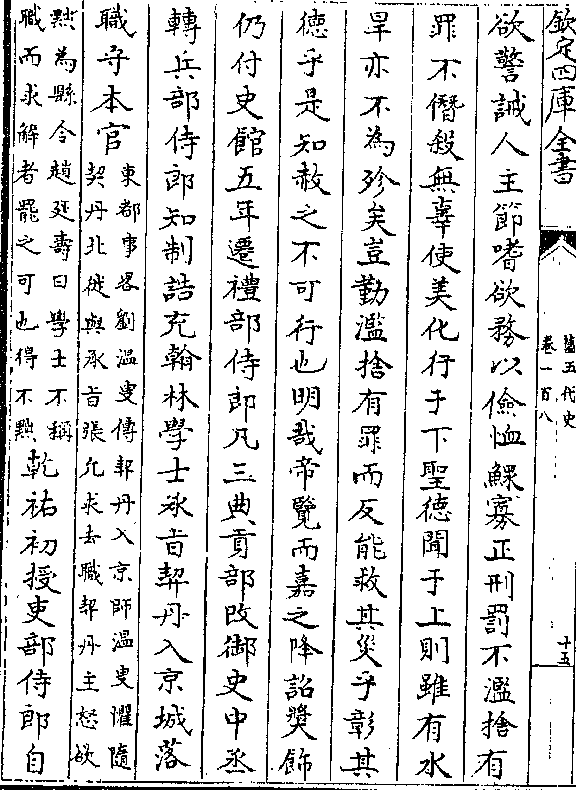 欽定四庫全書
舊五代史
卷一百八
十五
欲警誡人主節嗜欲務以儉恤鰥寡正刑罰不濫捨有
罪不僭殺無辜使美化行于下聖德聞于上則雖有水
旱亦不為沴矣豈勤濫捨有罪而反能救其災乎彰其
德乎是知赦之不可行也明哉帝覽而嘉之降詔奬飾
仍付史館五年遷禮部侍郎凡三典貢部改御史中丞
轉兵部侍郎知制誥充翰林學士承㫖契丹入京城落
職守本官
東都事畧劉溫叟傳契丹入京師溫叟懼隨
契丹北徙與承㫖張允求去職契丹主怒欲
㸃為縣令趙延壽曰學士不稱
職而求解者罷之可也得不㸃
乾祐初授吏部侍郎自